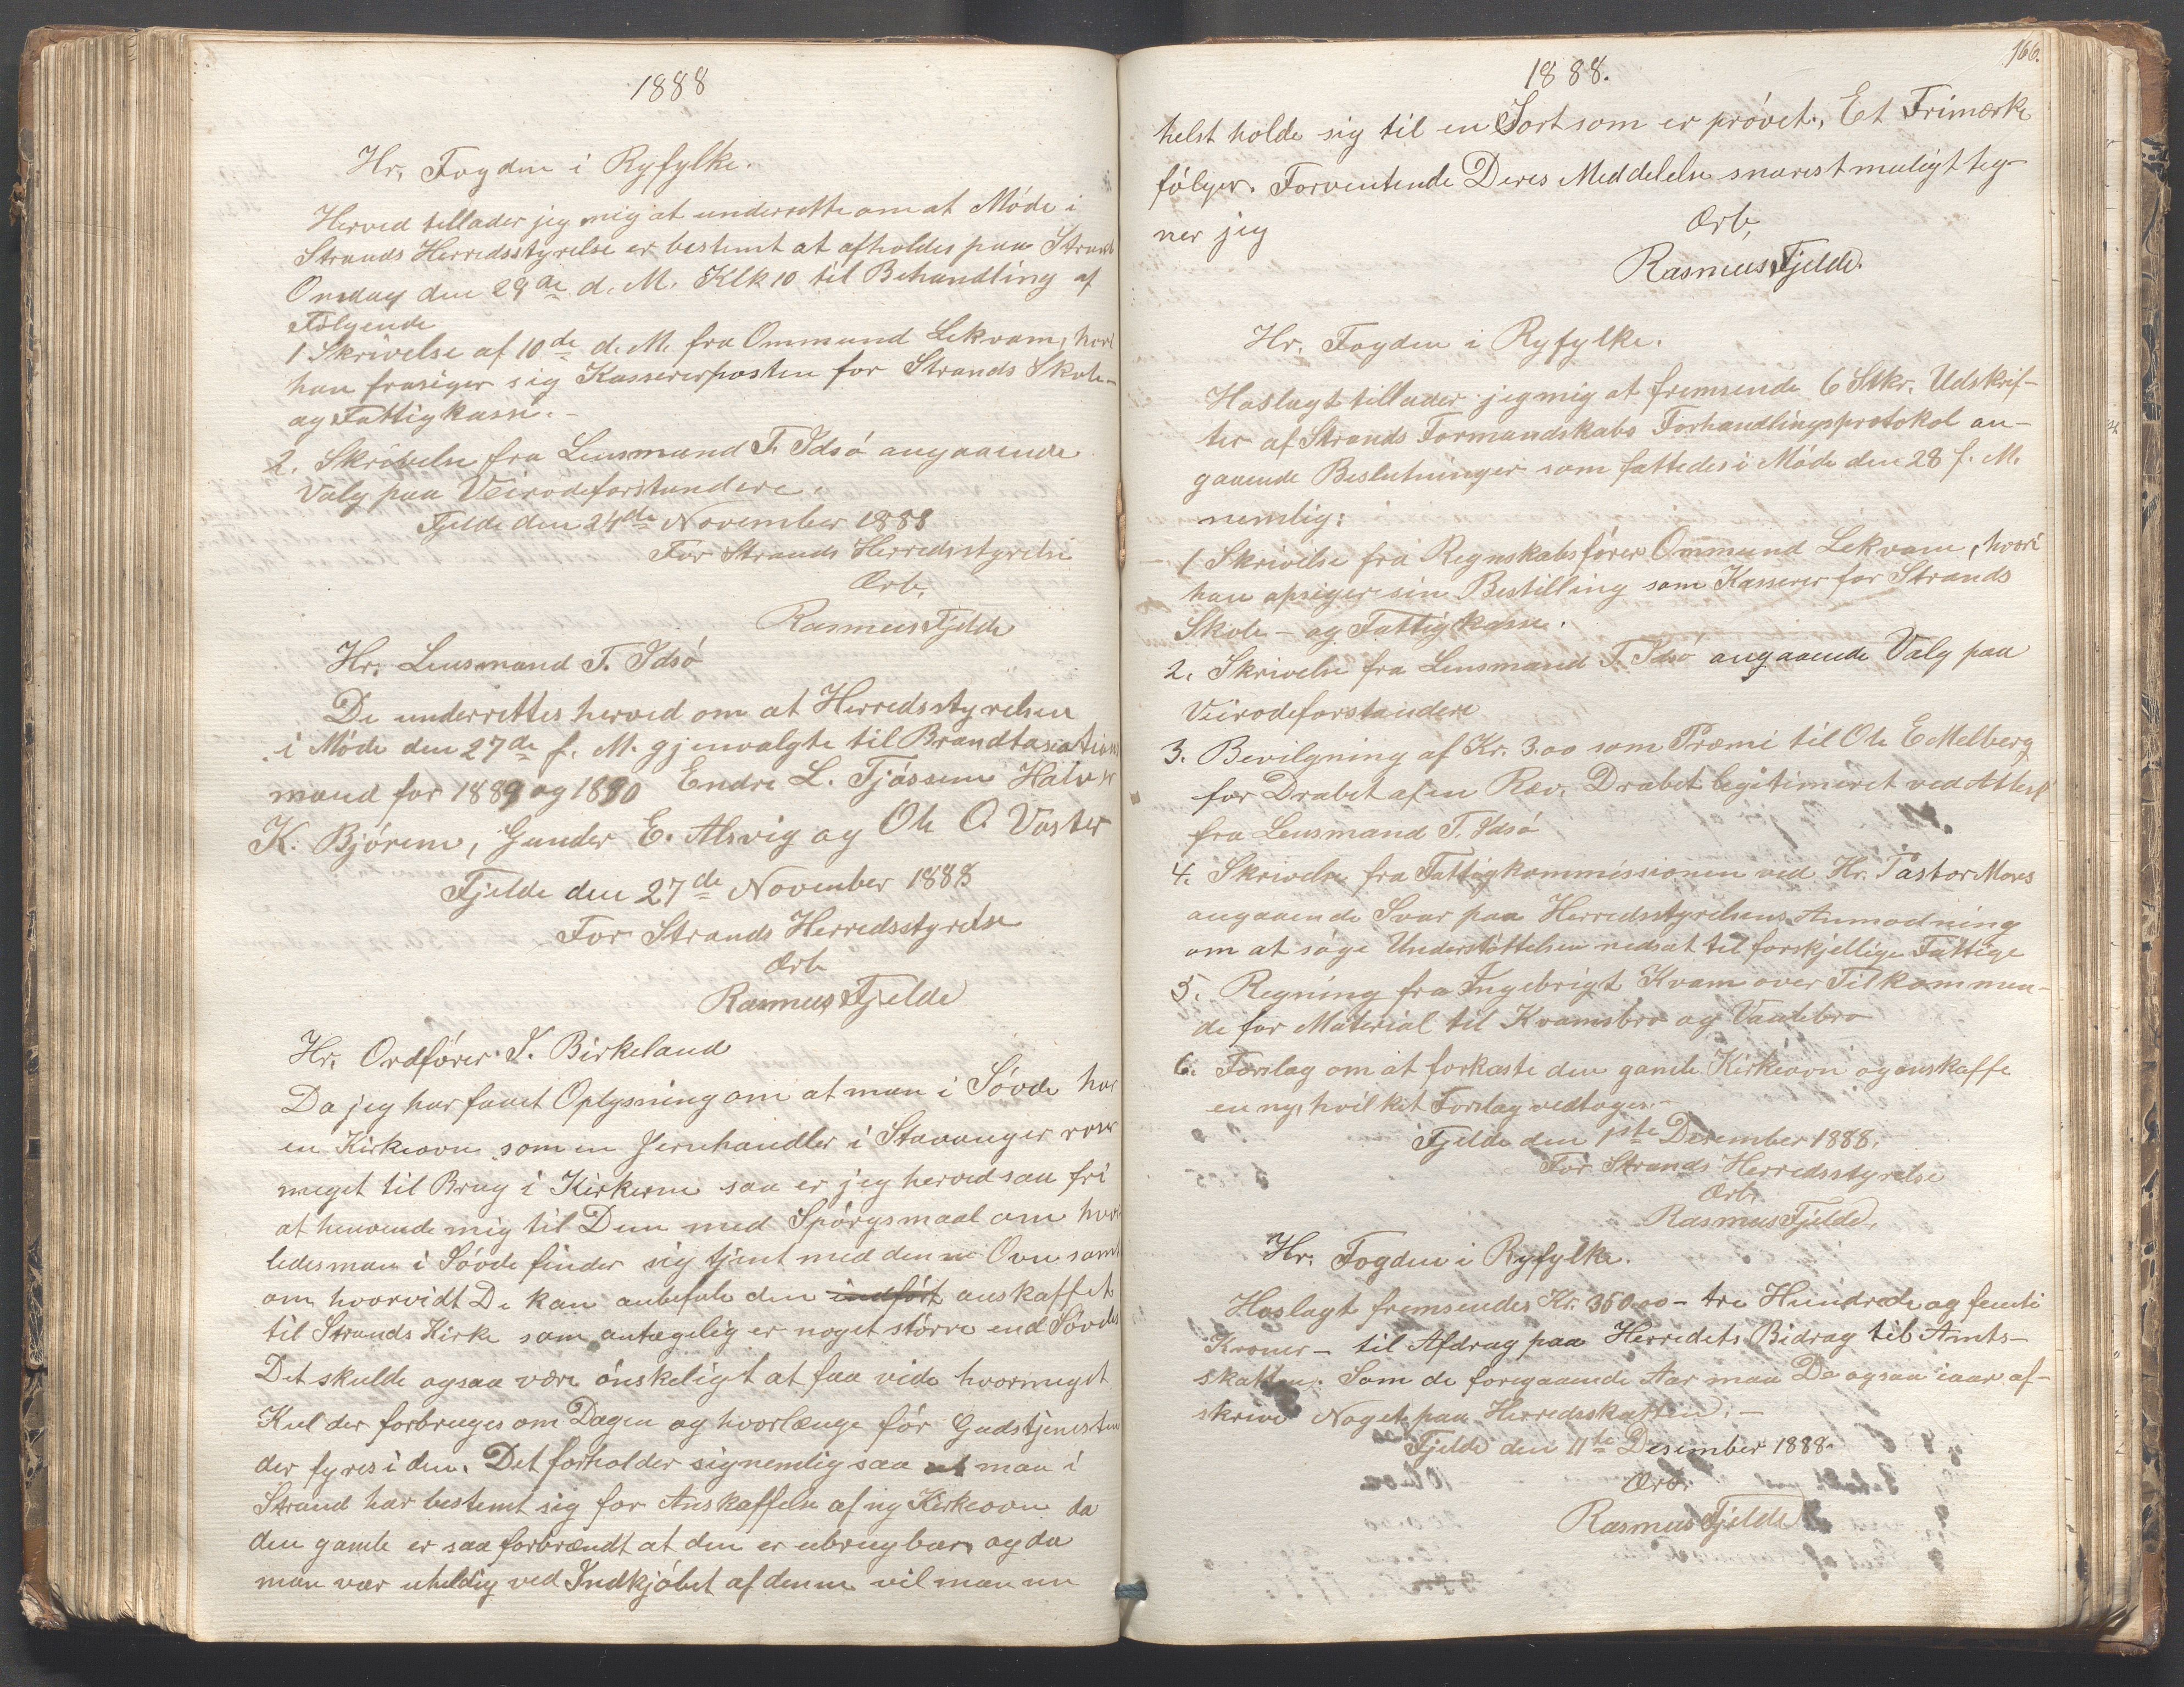 1888
Hr, Fogden i Ryfylke.
Herved tillader jeg mig at underrette om at Möde i
Strands Herredsstyrelse er bestemt at afholdes paa Strand
Onsdag den 29de d. M. Klk 10 til Behandling af
Fölgende
1 Skrivelse af 10de d. M. fra Ommund Lekvam, hvori
han frasiger sig Kassererposten for Strands Skole-
og Fattigkasse. -
2. Skrivelse fra Lensmand T. Idsö angaaende
Valg paa Veirodeforstandere.
Fjelde den 24de November 1888
For Strands Herredsstyrelse
Ærb,
Rasmus Fjelde
Hr. Lensmand T. Idsö
De underrettes herved om at Herredsstyrelsen
i Möde den 27de f. M. gjenvalgte til Brandtaxations
mænd for 1889 og 1890 Endre L. Tjössem Halvor
K. Björeim, Gunder E. Alsvig og Ole O. Voster
Fjelde den 27de November 1888
For Strands Herredsstyrelse
Ærb
Rasmus Fjelde
Hr. Ordförer S. Birkeland
Da jeg har faaet Oplysning om at man i Sövde har
en Kirkeovn som en Jernhandler i Stavanger roser
meget til Brug i Kirkerne saa er jeg herved saa fri
at henvende mig til Dem med Spörgsmaal om hvor
ledes man i Sövde finder sig tjent med denne Ovn samt
om hvorvidt De kan anbefale den indfört anskaffet
til Strands Kirke som antagelig er noget större end Sövdes
Det skulde ogsaa være önskeligt at faa vide hvormeget
Kul der forbruges om Dagen og hvorlænge för Gudstjenesten
der fyres i den. Det forholder sig nemlig saa at man i
Strand har bestemt sig for Anskaffelse af ny Kirkeovn da
den gamle er saa forbrændt at den er ubrugbar, og da
man var uheldig ved Indkjöbet af denne vil man nu
166.
1888.
helst holde sig til en Sort som er prövet., Et Frimærke
fölger. Forventende Deres Meddelelse snarest muligt teg-
ner jeg
Ærb,
Rasmus Fjelde.
Hr. Fogden i Ryfylke.
Hoslagt tillader jeg mig at fremsende 6 Stkr. Udskrif-
ter af Strands Formandskabs Forhandlingsprotokol an-
gaaende Beslutninger som fattedes i Möde den 28 f. M.
nemlig:
1 Skrivelse fra Regnskabsförer Ommund Lekvam, hvori
han opsiger sin Bestilling som Kasserer for Strands
Skole- og Fattigkasse.
2. Skrivelse fra Lensmand T. Idsö angaaende Valg paa
Veirodeforstandere
3. Bevilgning af Kr. 3.00 som Præmi til Ole E Melberg
for Drabet af en Ræv. Drabet legitimeret ved Attest
fra Lensmand T. Idsö
4. Skrivelse fra Fattigkommissionen ved Hr. Pastor Mores
angaaende Svar paa Herredsstyrelsens Anmodning
om at söge Understöttelsen nedsat til forskjellige Fattige
5. Regning fra Ingebrigt Kvam over Tilkommen-
de for Material til Kvamsbro og Vandebro
6. Forslag om at forkaste den gamle Kirkeovn og anskaffe
en ny, hvilket Forslag vedtoges. -
Fjelde den 1ste Desember 1888.
For Strands Herredsstyrelse
Ærb,
Rasmus Fjelde.
Hr. Fogden i Ryfylke.
Hoslagt fremsendes Kr. 350.00 - tre Hundrede og femti
Kroner - til Afdrag paa Herredets Bidrag til Amts-
skatten. Som de foregaaende Aar maa De ogsaa iaar af-
skrive Noget paa Herredsskatten. -
Fjelde den 11te Desember 1888.
Ærb.
Rasmus Fjelde